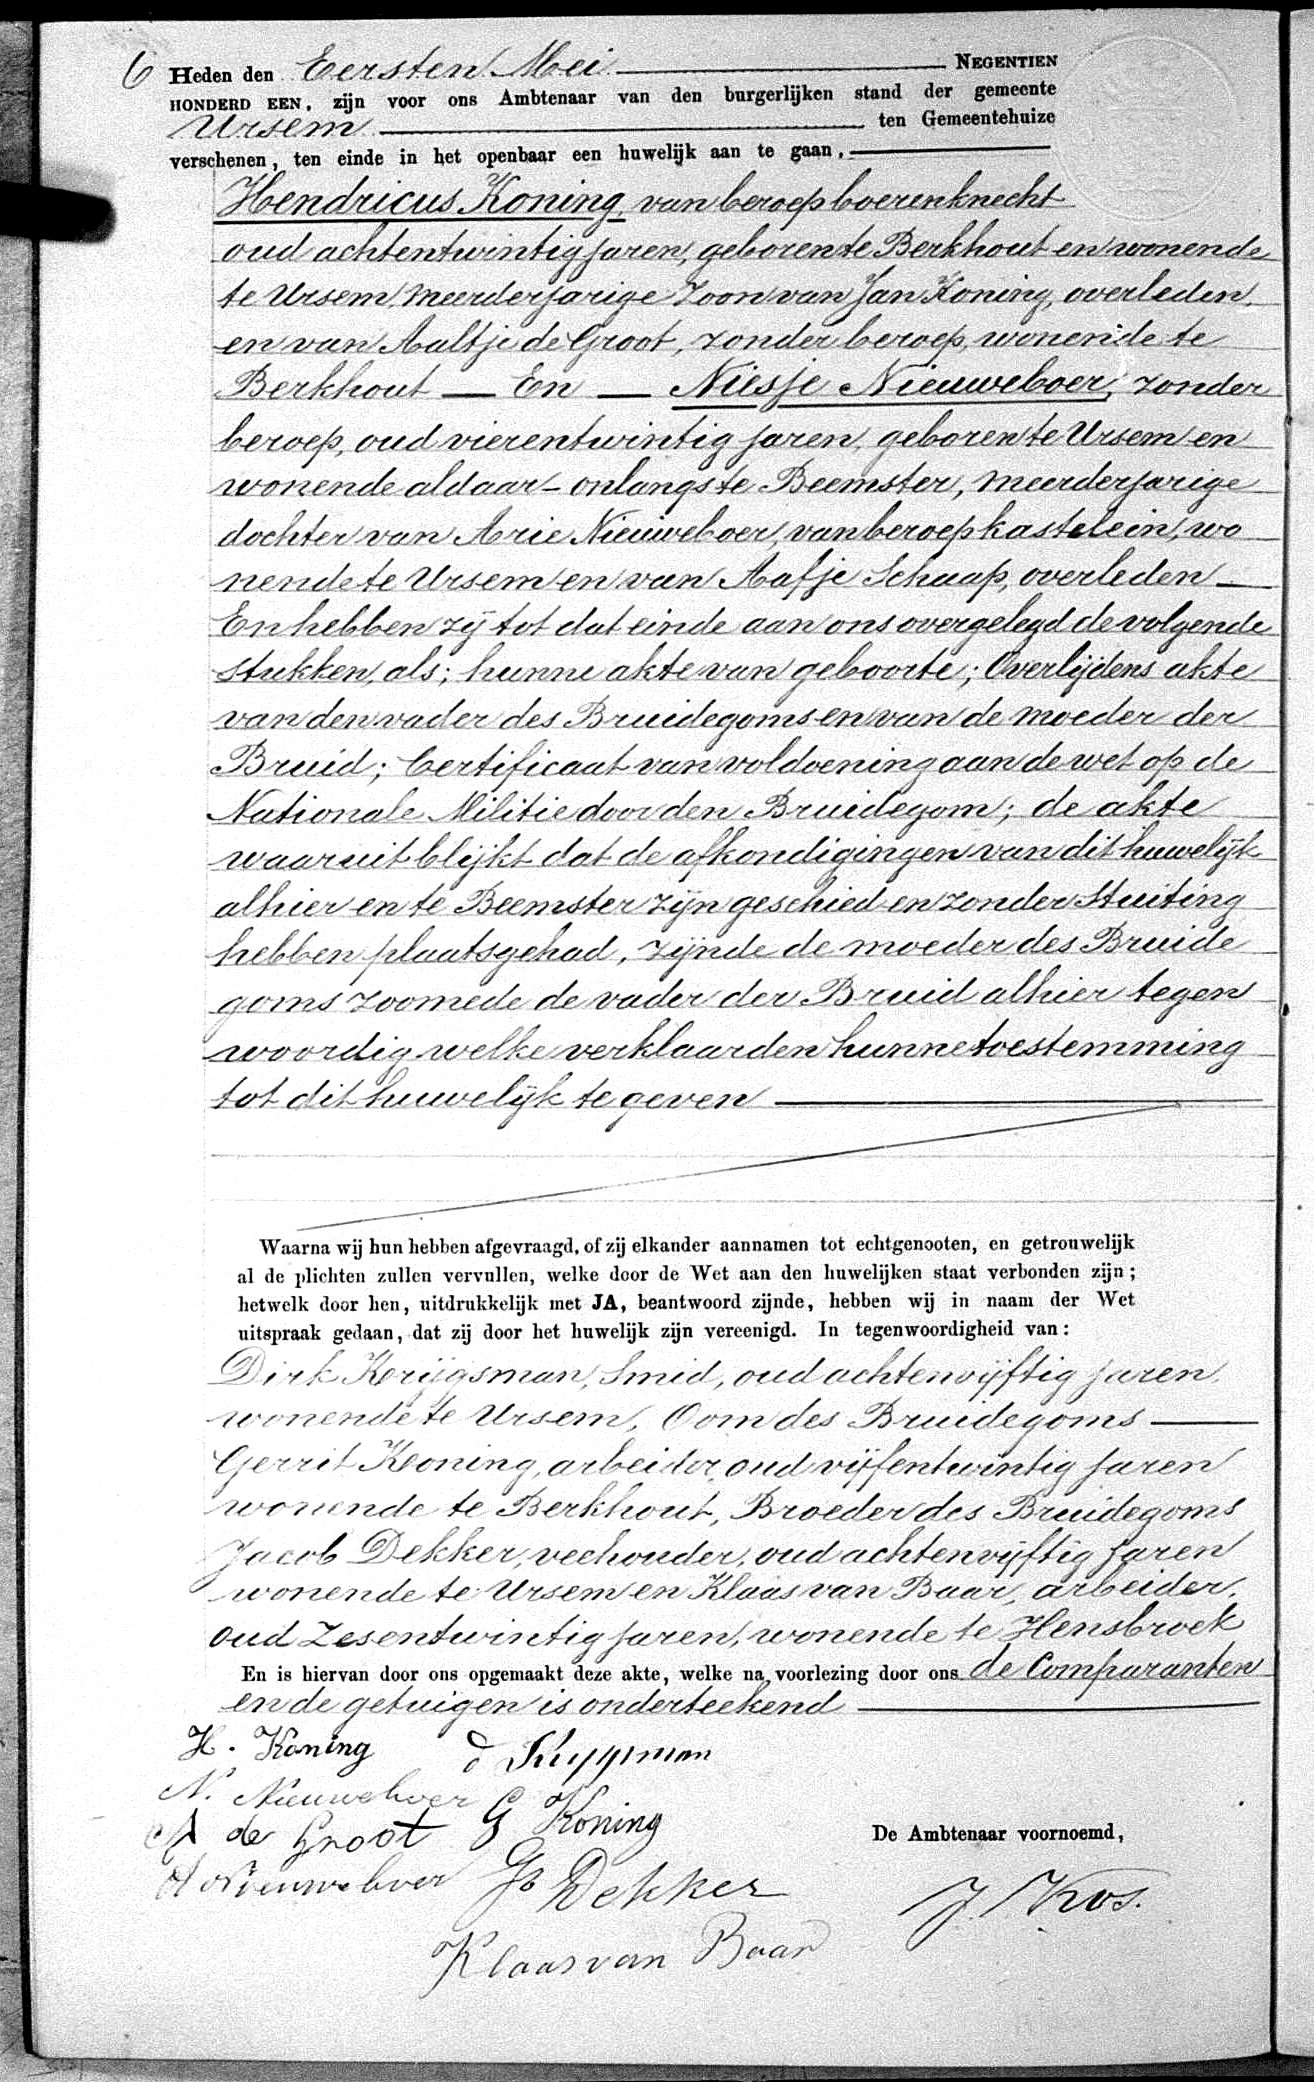 6 Heden den Eersten Mei NEGENTIEN
HONDERD EEN, zijn voor ons Ambtenaar van den burgerlijken stand der gemeente
Ursem ten Gemeentehuize
verschenen, ten einde in het openbaar een huwelijk aan te gaan,
Hendricus Koning, van beroep boerenknecht
oud achtentwintig jaren, geboren te Berkhout en wonende
te Ursem, meerderjarige Zoon van Jan Koning, overleden,
en van Aaltje de Groot, zonder beroep, wonende te
Berkhout — En — Niesje Nieuweboer, zonder
beroep, oud vierentwintig jaren, geboren te Ursem en
wonende aldaar - onlangs te Beemster, meerderjarige
dochter van Arie Nieuweboer, van beroep kastelein, wo
nende te Ursem en van Aafje Schaap, overleden —
En hebben zij tot dat einde aan ons overgelegd de volgende
stukken, als; hunne akte van geboorte; Overlijdens akte
van den vader des Bruidegoms en van de moeder der
Bruid; Certificaat van voldoening aan de wet op de
Nationale Militie door den Bruidegom; de akte
waaruit blijkt dat de afkondigingen van dit huwelijk
alhier en te Beemster zijn geschied en zonder Stuiting
hebben plaatsgehad, zijnde de moeder des Bruide
goms zoomede de vader der Bruid alhier tegen
woordig welke verklaarden hunne toestemming
tot dit huwelijk te geven
Waarna wij hun hebben afgevraagd, of zij elkander aannamen tot echtgenooten, en getrouwelijk
al de plichten zullen vervullen, welke door de Wet aan den huwelijken staat verbonden zijn;
hetwelk door hen, uitdrukkelijk met JA, beantwoord zijnde, hebben wij in naam der Wet
uitspraak gedaan, dat zij door het huwelijk zijn vereenigd. In tegenwoordigheid van:
Dirk Krijgsman, Smid, oud achtenvijftig jaren,
wonende te Ursem, Oom des Bruidegoms
Gerrit Koning, arbeider, oud vijfentwintig jaren
wonende te Berkhout, Broeder des Bruidegoms
Jacob Dekker, veehouder, oud achtenvijftig jaren
wonende te Ursem en Klaas van Baar, arbeider,
oud Zesentwintig jaren, wonende te Hensbroek
En is hiervan door ons opgemaakt deze akte, welke na voorlezing door ons de Comparanten
en de getuigen is onderteekend
H. Koning d Krijgsman
N. Nieuweboer
A de Groot G Koning
De Ambtenaar voornoemd,
A Nieuweboer Jb Dekker
J. Kos.
Klaas van Baar